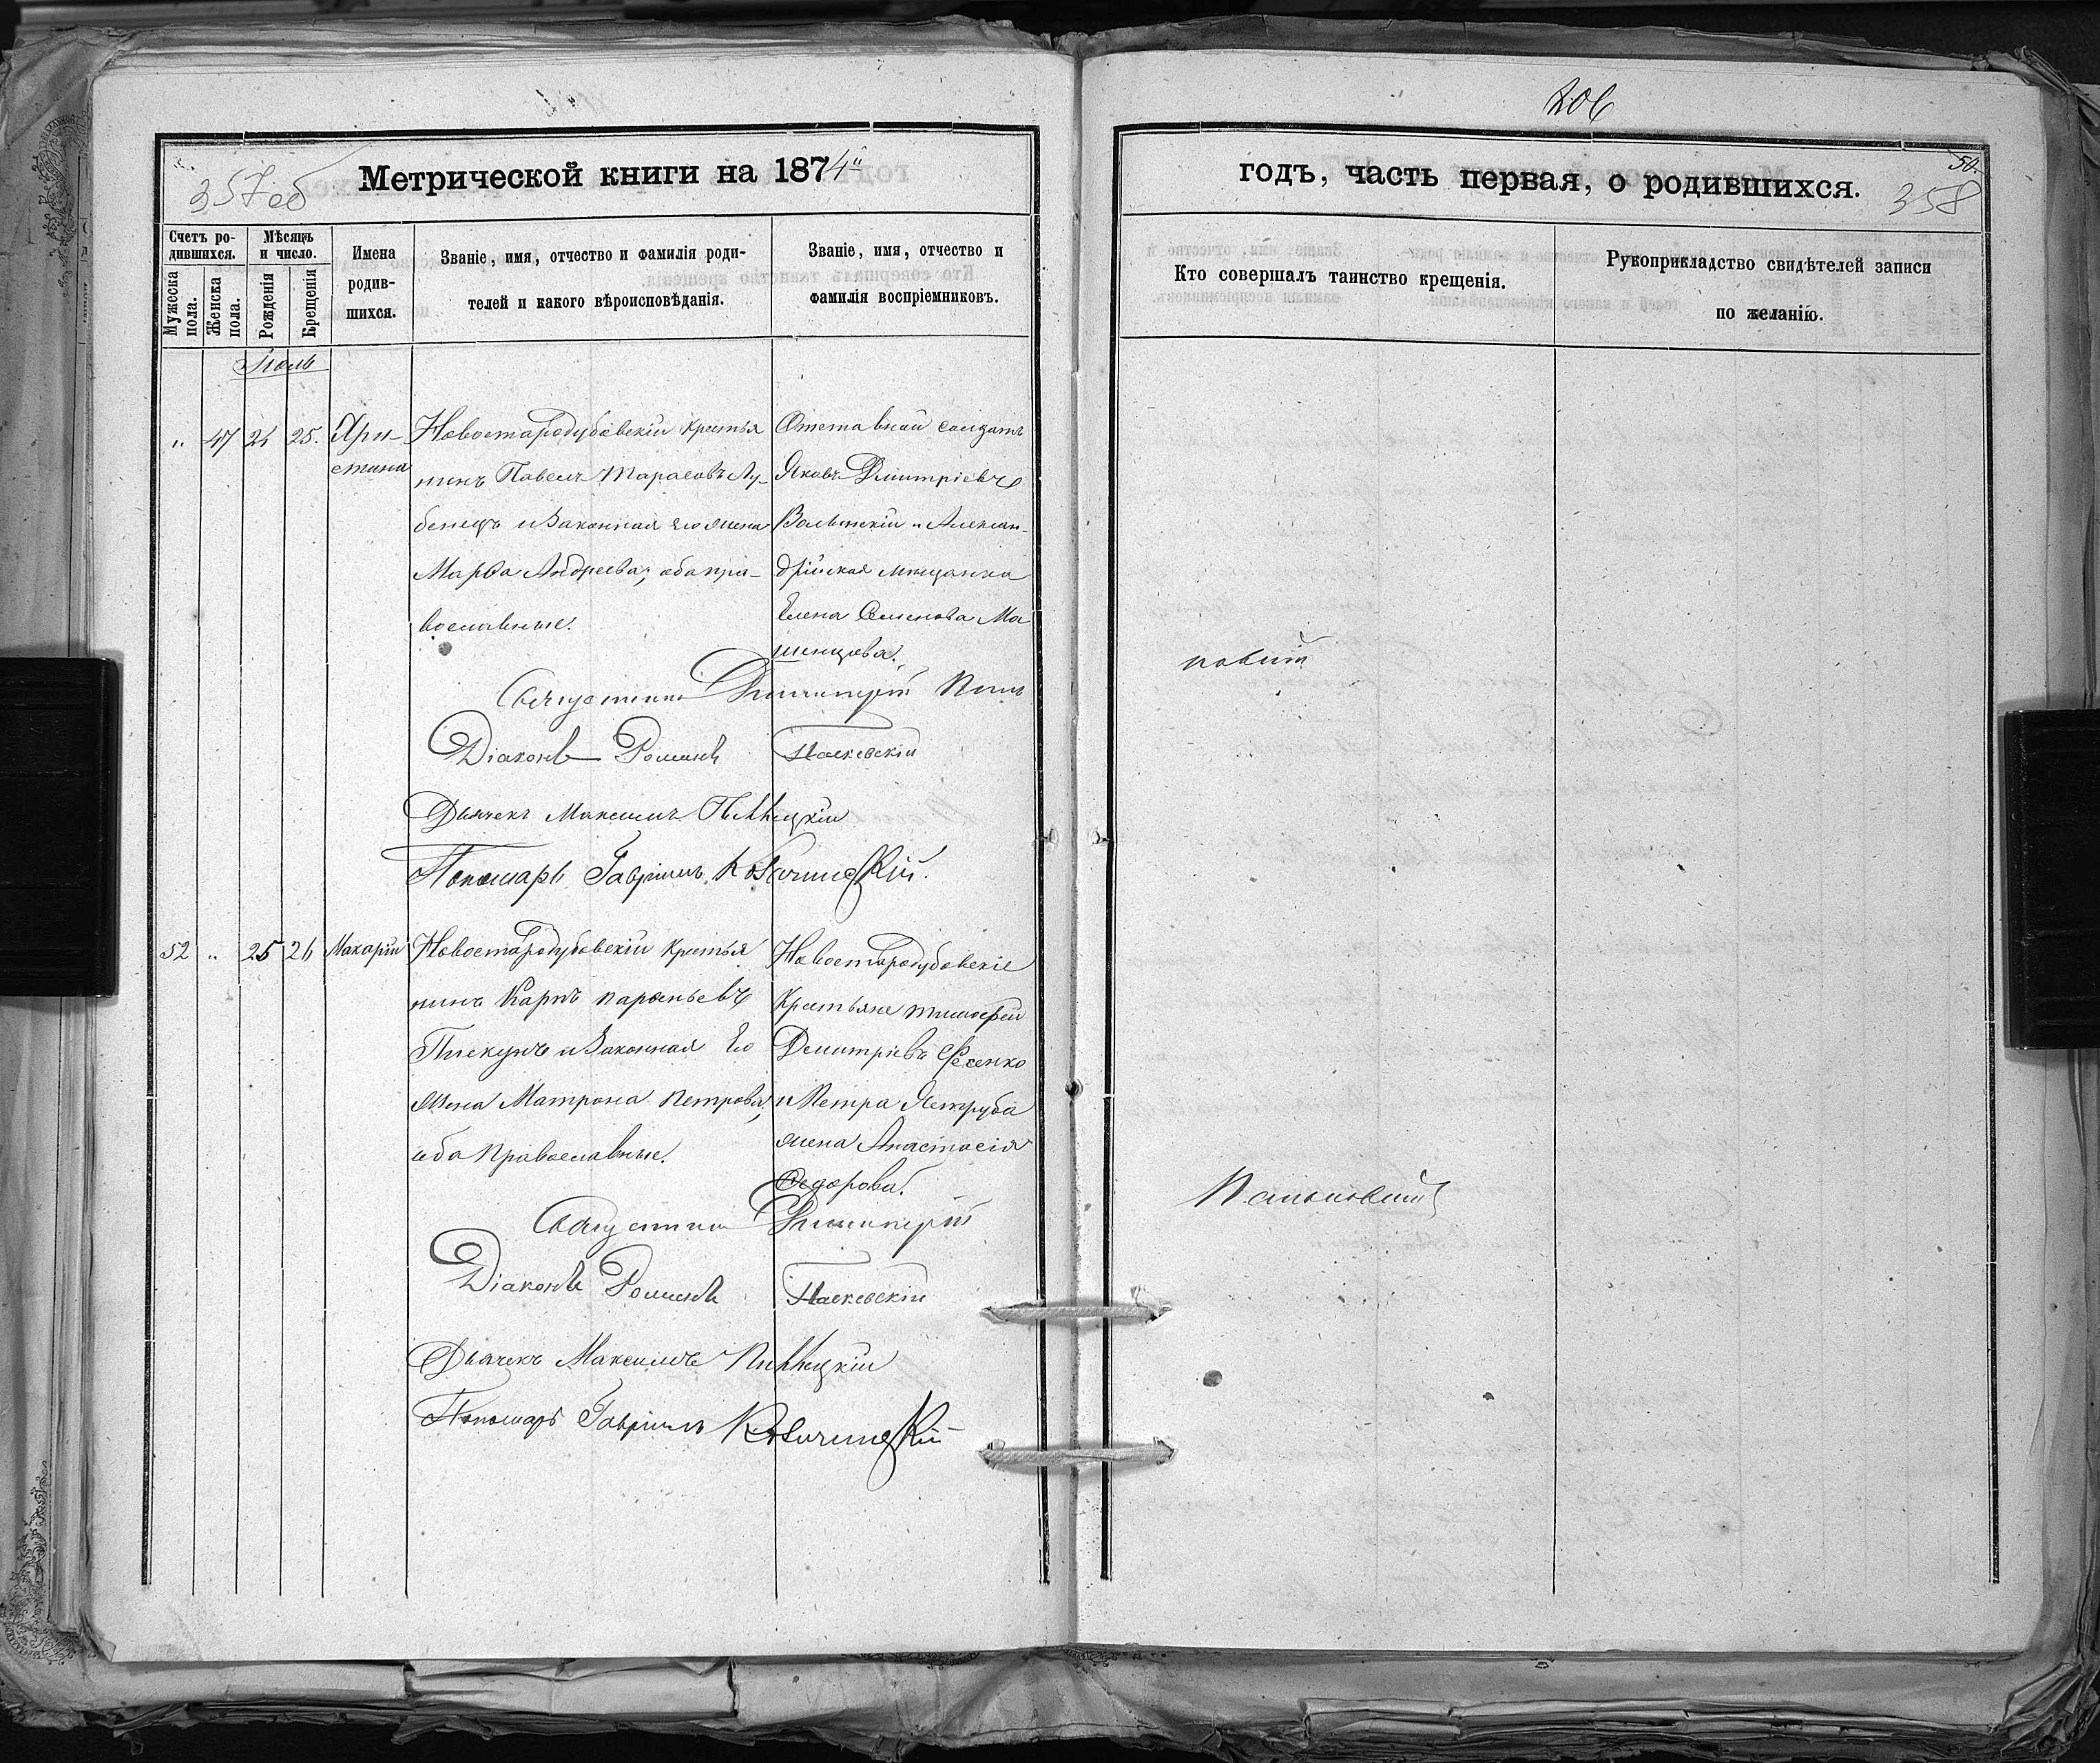 206
357 об
Метрической книги на 1874й
годъ, часть первая, о родившихся.
50.
358
Счетъ ро-
дившихся.
Мужеска пола.
Женска пола.
Мѣсяцъ
и число.
Рожденія
Крещенія
Имена
родив-
шихся.
Званіе, имя, отчество и фамилія роди-
телей и какого вѣроисповѣданія.
Званіе, имя, отчество и
фамилія воспріемниковъ.
Кто совершалъ таинство крещенія.
Рукоприкладство свидѣтелей записи
по желанію.
Іюль
" 47 25.
Хри-
стина
Новостародубовскій крестья
нинъ Павелъ Тарасовъ Лу-
бенецъ и Законная его жена
Марѳа Андреева, оба пра-
вославные.
Отставной солдатъ
Яковъ Димитріевъ
Волынскій и Алексан-
дрійская мѣщанка
Елена Семенова Ма
шенцова.
Священникъ Димитрій Поль
новский
Діаконъ Романъ Паскевскій
Дьячекъ Максимъ
Пономарь Гавріилъ
52 " 25 26 Макарій
Новостародубовскій крестья
нинъ Карпъ
Пискунъ и Законная Его
жена Матрона Петрова,
оба Православные.
Новостародубовскіе
Крестьяне Тимофей
Димитріевъ Фесенко
и Петра Ястреба
жена Анастасія
Ѳедорова.
Димитрій
Польновский
Діаконъ Романъ Паскевскій
Дьячекъ Максимъ
Пономарь Гавріилъ